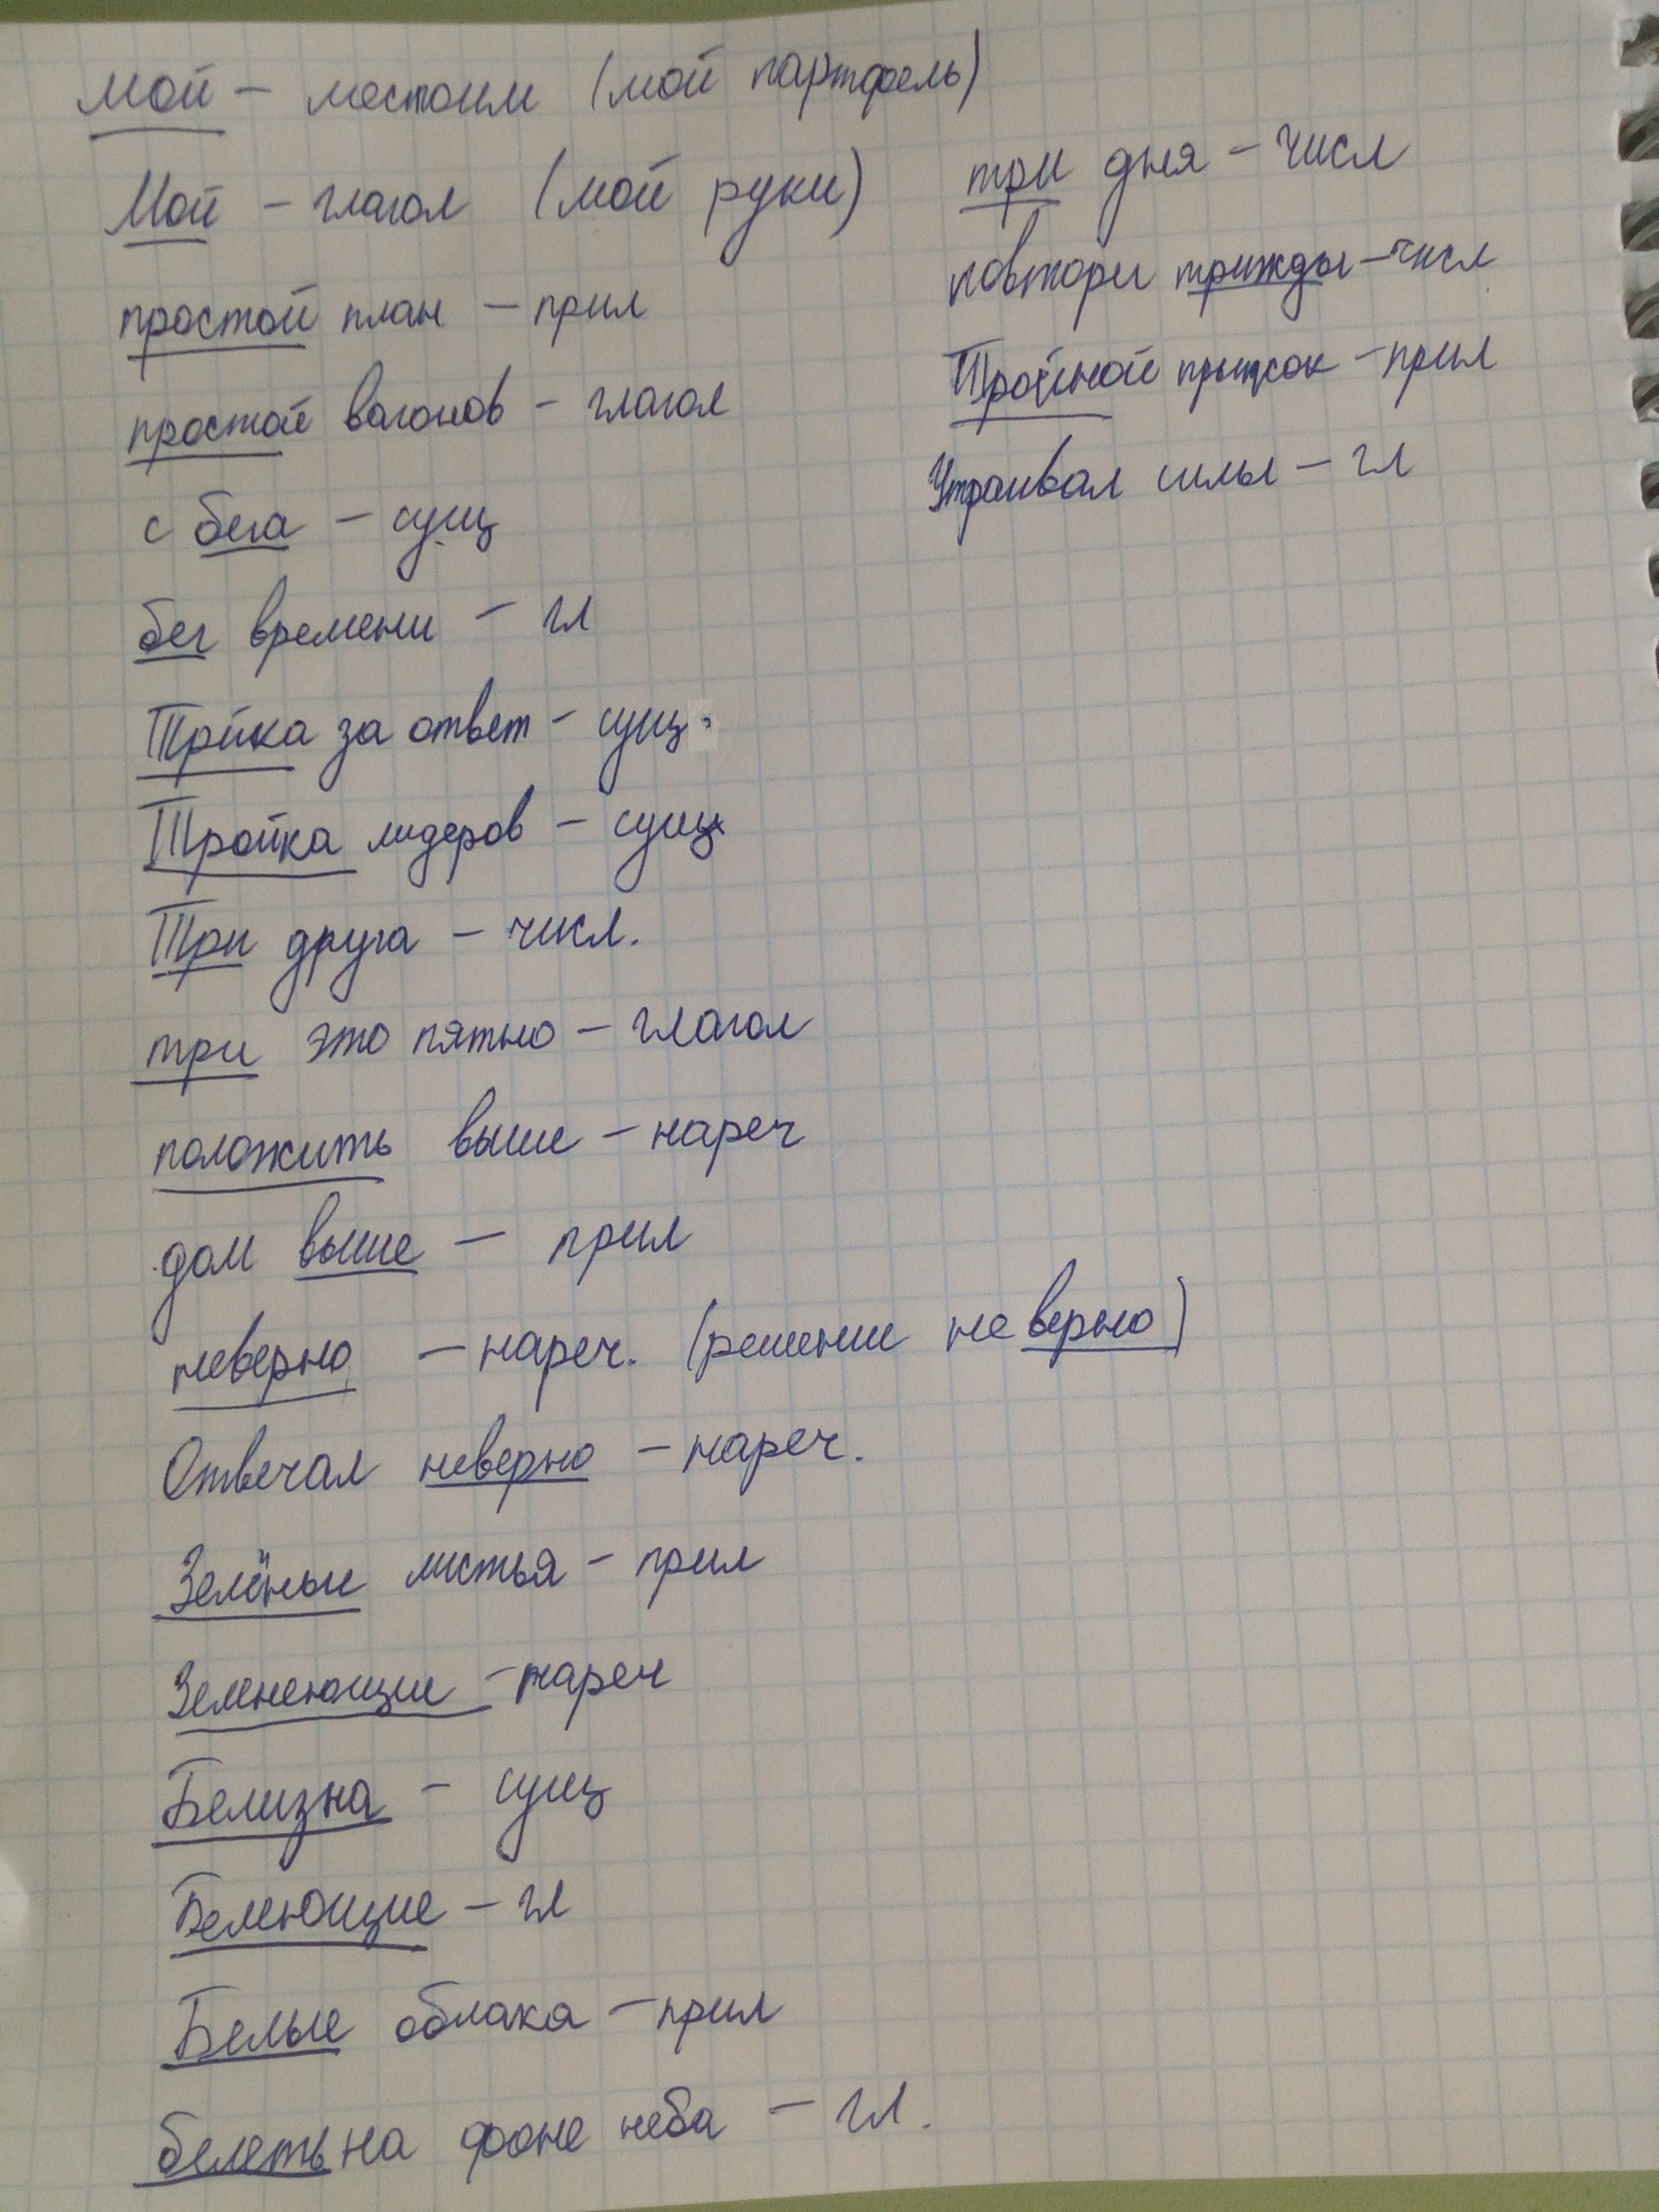 Мой – местоим (мой портфель)
Мой – глагол (мой руки)
простой план – прил
простой вагонов – глагол
с бега – сущ
бег времени – гл
Трйка за ответ – сущ.
Тройка лидеров – сущ
Три друга – числ.
три это пятно – глагол
положить выше – нареч
дом выше – прил
неверно – нареч. (решение неверно)
Отвечал неверно – нареч.
Зелёные листья – прил
Зеленеющие – нареч
Белизна – сущ
Белеющие – гл
Белые облака – прил
белеть на фоне неба – гл.
три дня – числ
повтори трижды – числ
Тройной прыжок – прил
Утраивал силы – гл